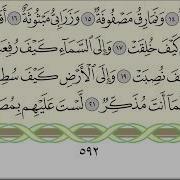 ١٤ وَنَمَارِقُ مَصْفُوفَةٌ ١٥ وَزَرَابِيُّ مَبْثُوثَةٌ ١٦ أَ
كَيْفَ خُلِقَتْ ١٧ وَإِلَى ٱلسَّمَآءِ كَيْفَ رُفِعَ
فَ نُصِبَتْ ١٩ وَإِلَى ٱلْأَرْضِ كَيْفَ سُطِ
مَآ أَنتَ مُذَكِّرٌ ٢١ لَّسْتَ عَلَيْهِم بِمُصَ
٥٩٢